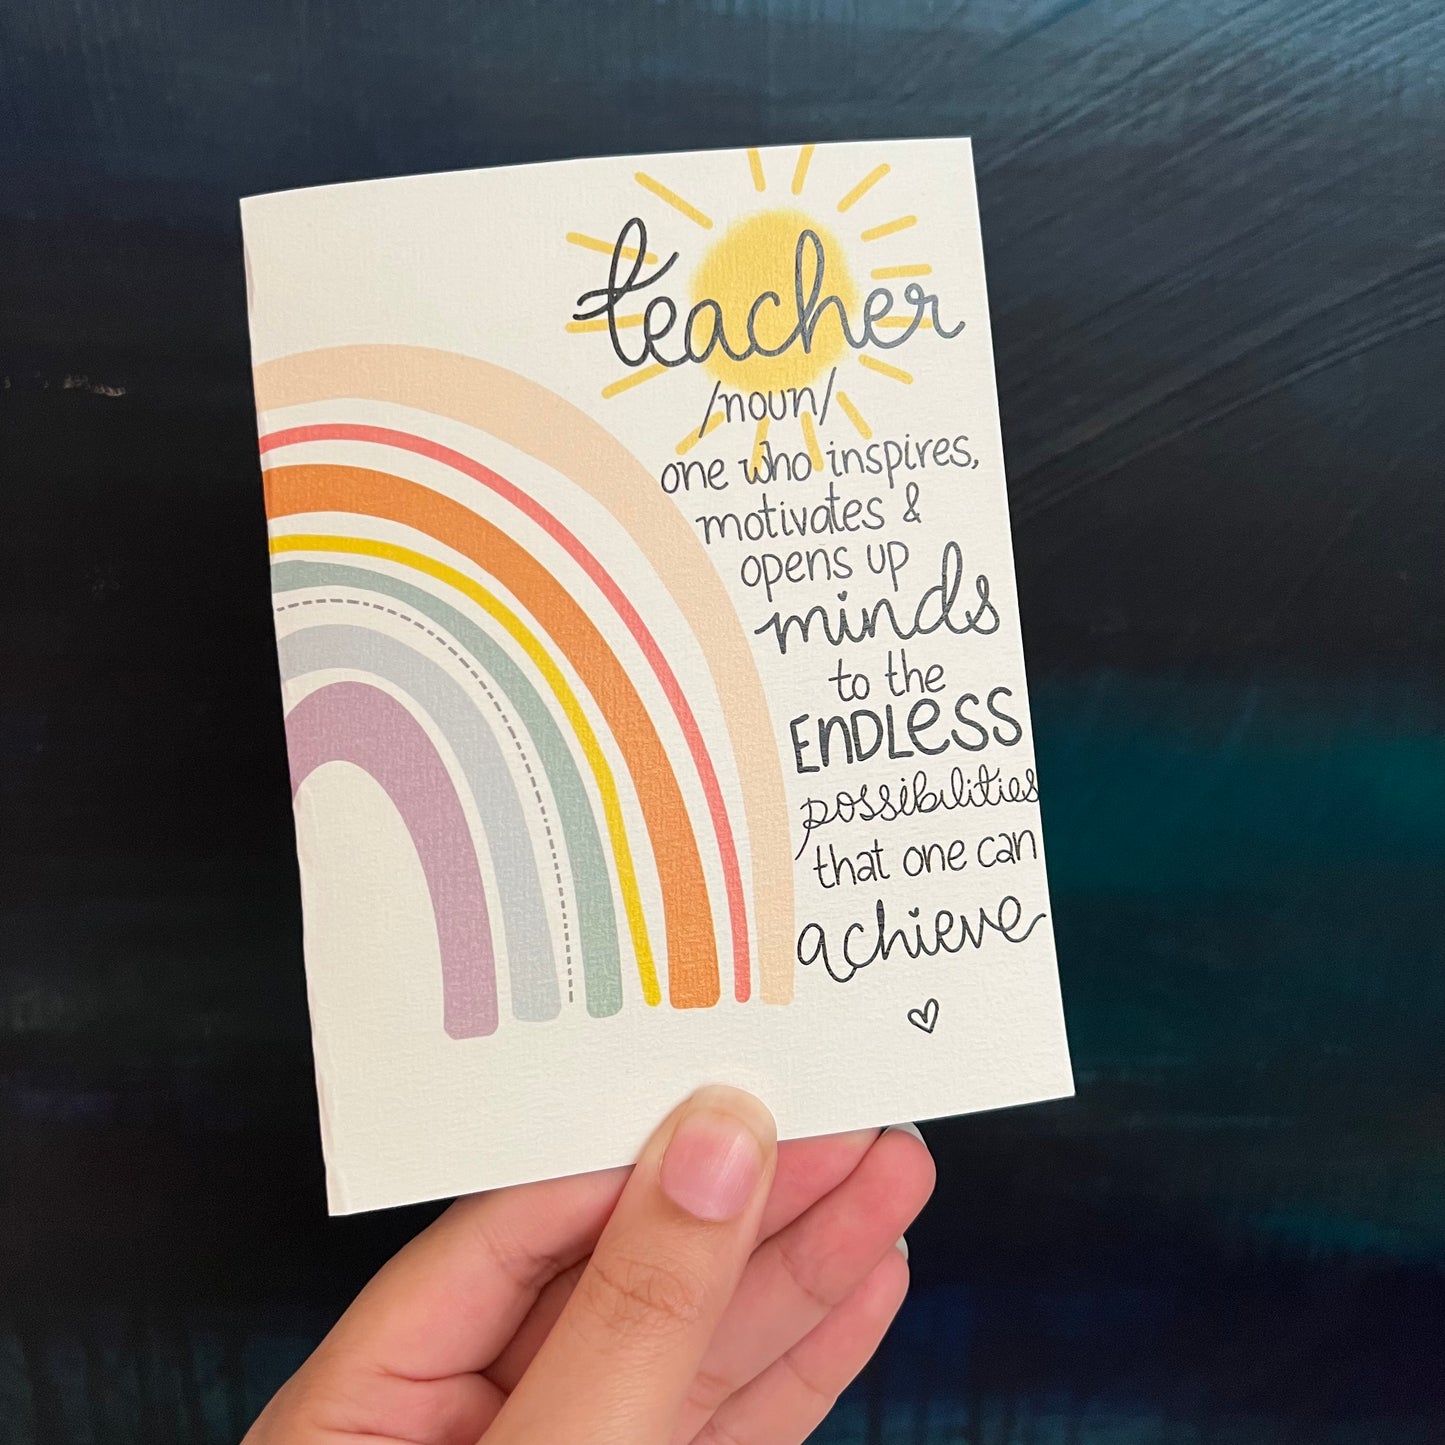 teacher
/noun/
one who inspires,
motivates &
opens up
minds
to the
ENDLESS
possibilities
that one can
achieve